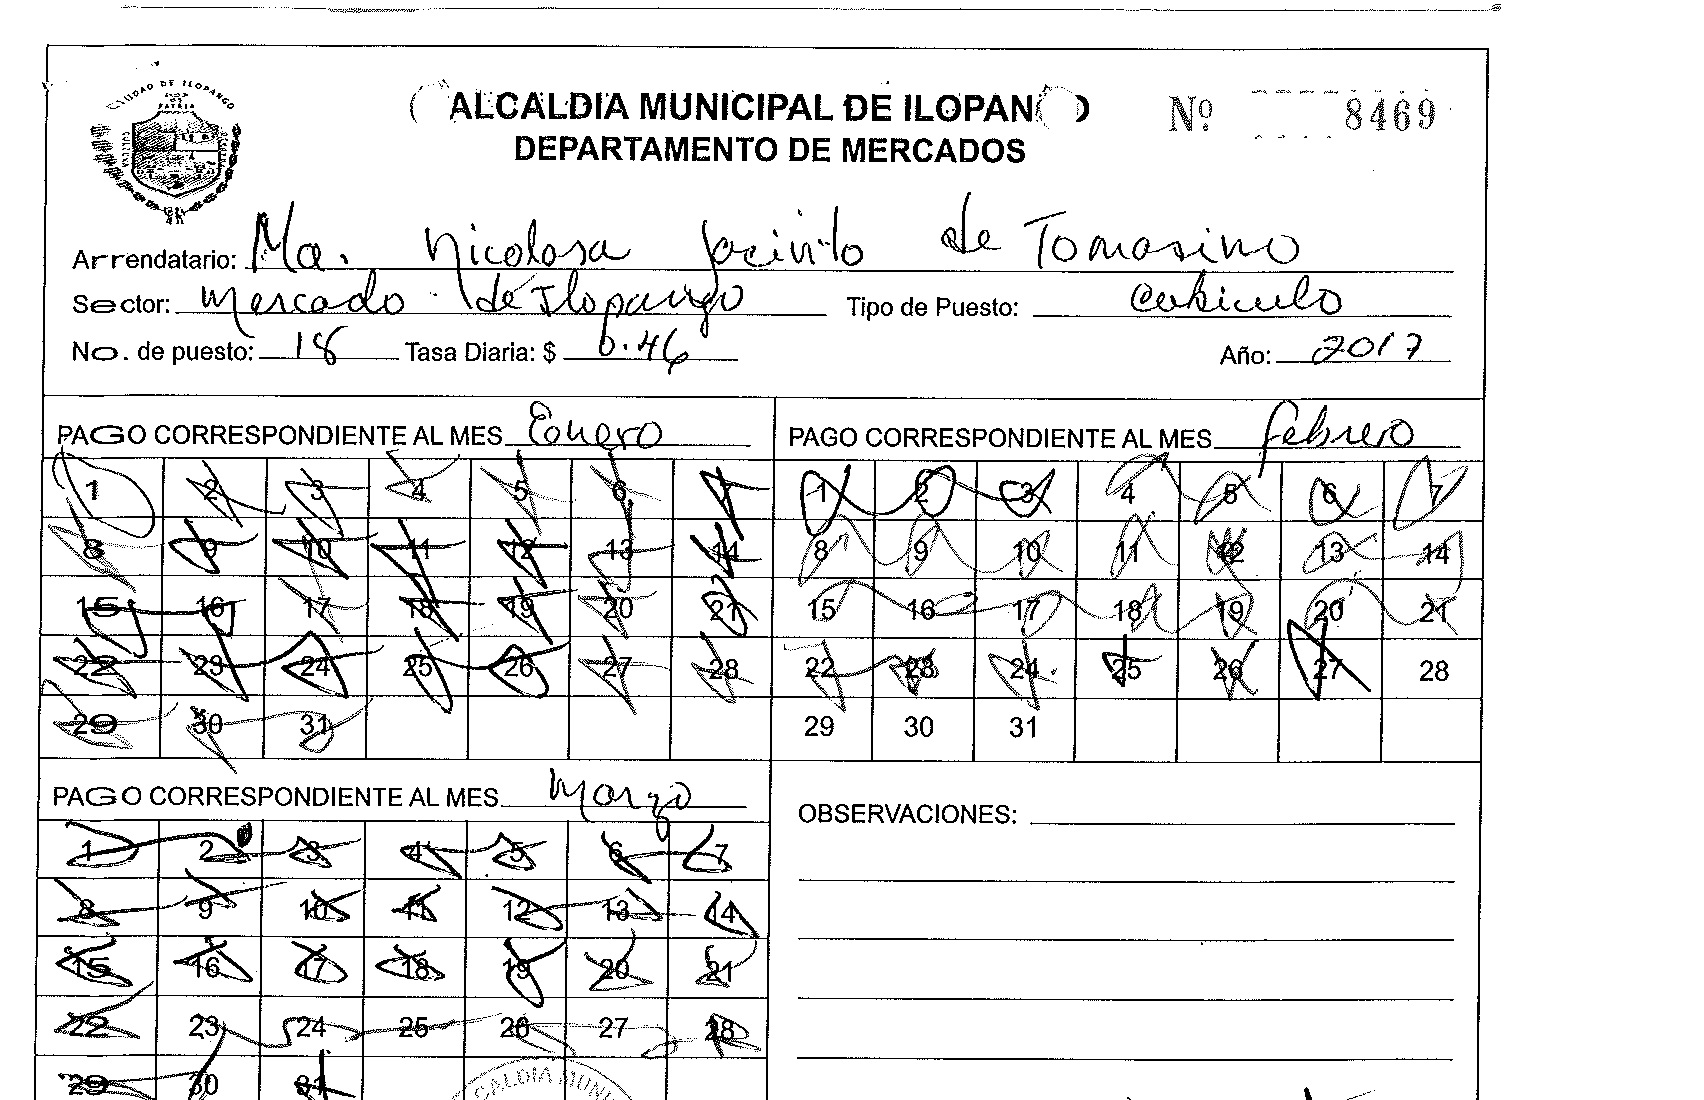 CIUDAD DE ILOPANGO
PATRIA
ALCALDIA MUNICIPAL DE ILOPAN
Nº 8469
DEPARTAMENTO DE MERCADOS
Arrendatario: Ma. Nicolasa Jacinto de Tomasino
Sector: Mercado de Ilopango Tipo de Puesto: Cubiculo
No. de puesto: 18 Tasa Diaria: $ 0.46 Año: 2017
PAGO CORRESPONDIENTE AL MES Enero
1 2 3 4 5 6 7
8 9 10 11 12 13 14
15 16 17 18 19 20 21
22 23 24 25 26 27 28
29 30 31
PAGO CORRESPONDIENTE AL MES febrero
1 2 3 4 5 6 7
8 9 10 11 12 13 14
15 16 17 18 19 20 21
22 23 24 25 26 27 28
29 30 31
PAGO CORRESPONDIENTE AL MES Marzo
1 2 3 4 5 6 7
8 9 10 11 12 13 14
15 16 17 18 19 20 21
22 23 24 25 26 27 28
29 30 31
CALDIA MUNI
OBSERVACIONES: